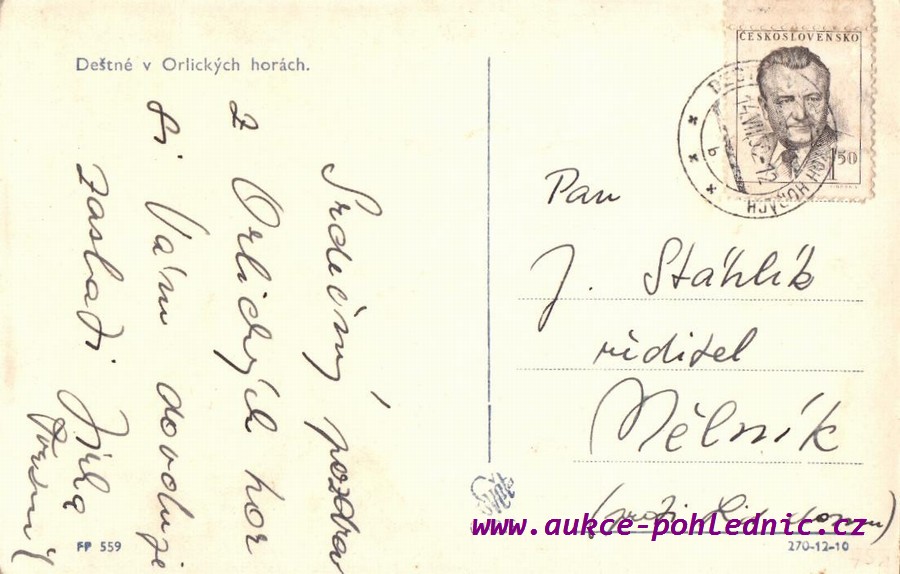 Deštné v Orlických horách.
Srdečný pozdrav
z Orlických hor
si Vám dovoluje
zaslati Jirka
ČESKOSLOVENSKO
1 50
HORÁCH
b
Pan
J. Stáhlík
ředitel
Mělník
(proti
Svět
www.aukce-pohlednic.cz
FP 559
270-12-10